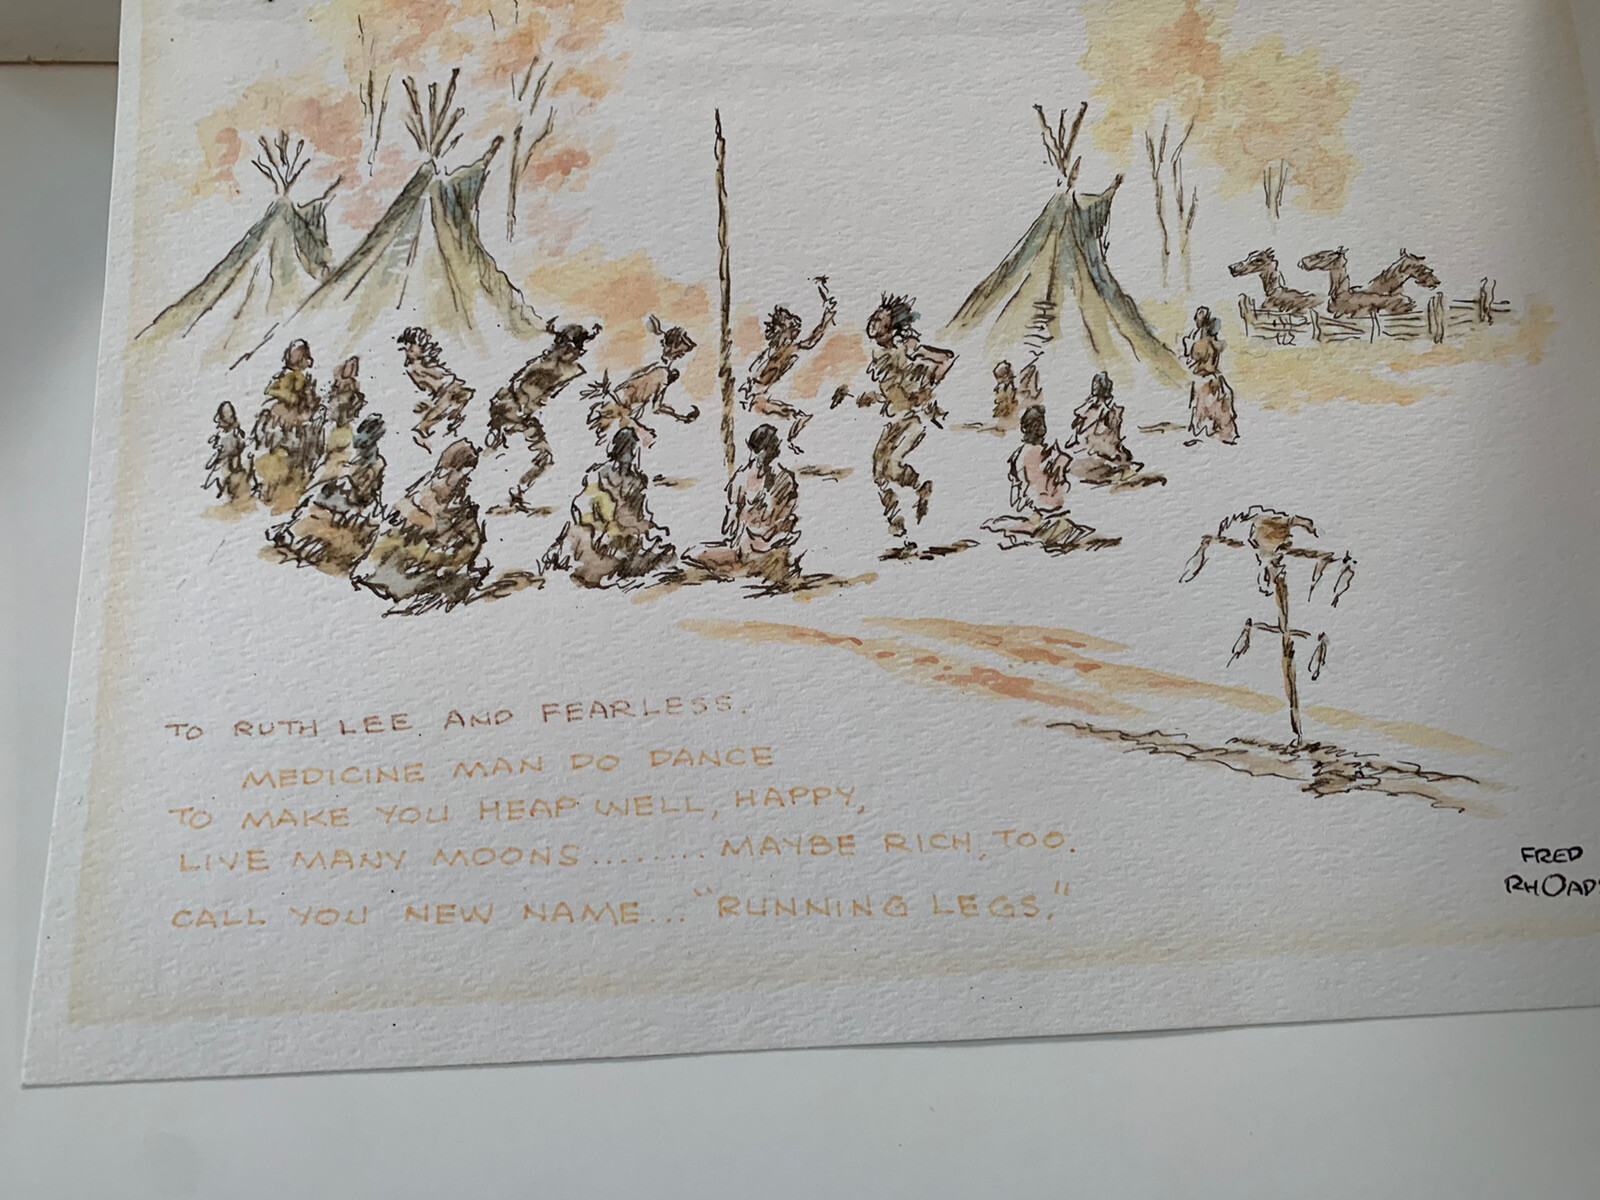 TO RUTH LEE AND FEARLESS.
MEDICINE MAN DO DANCE
TO MAKE YOU HEAP WELL, HAPPY,
LIVE MANY MOONS........ MAYBE RICH, TOO.
CALL YOU NEW NAME... "RUNNING LEGS."
FRED
RHOADS